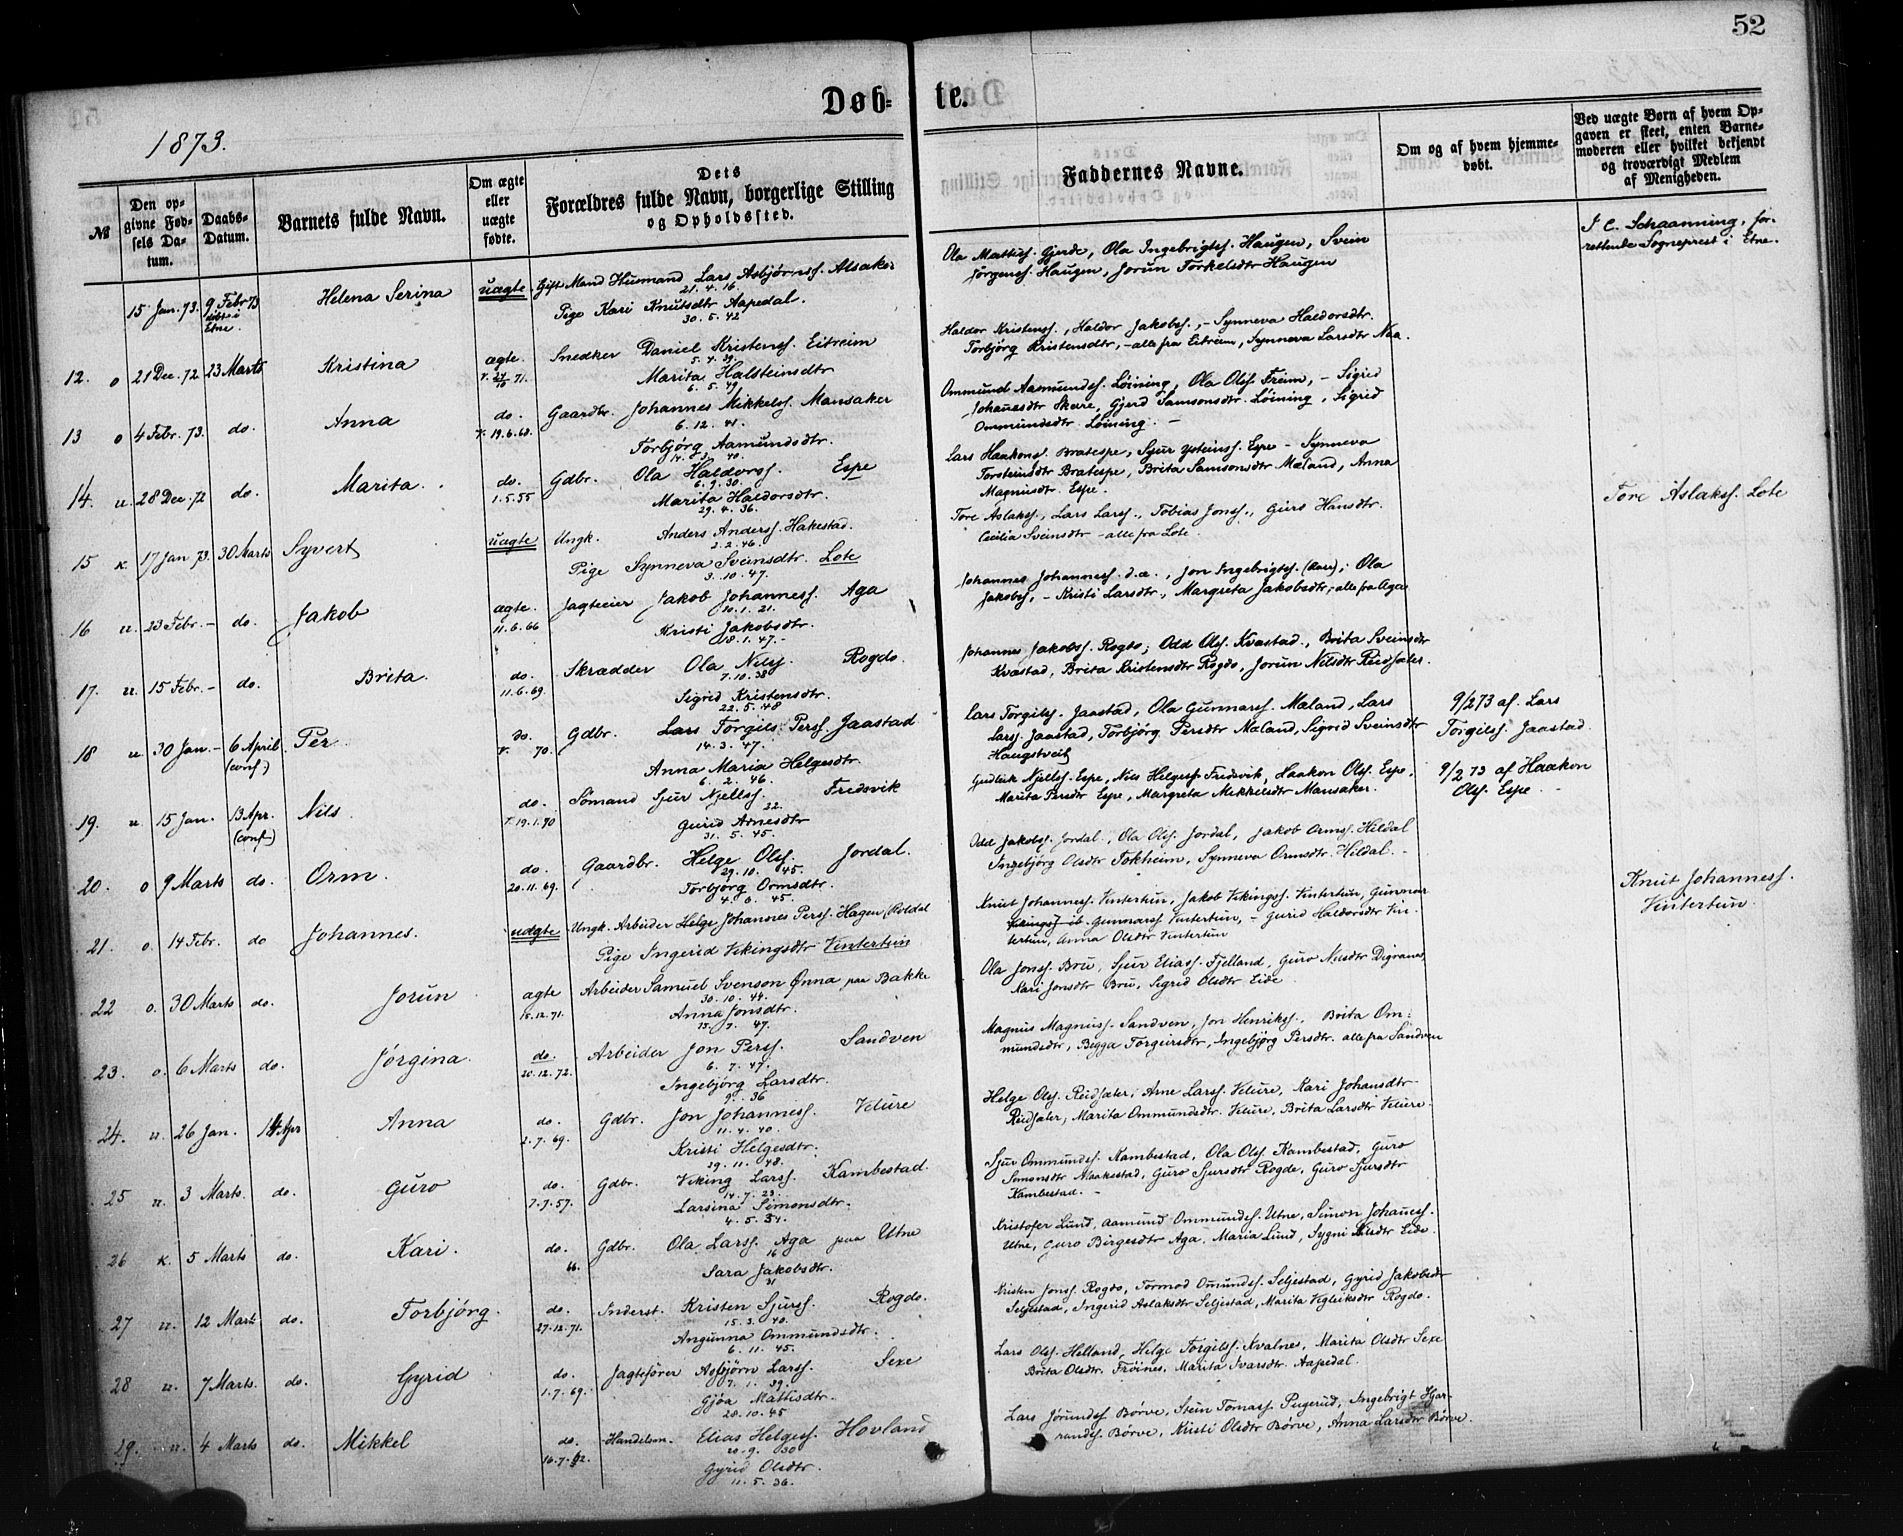 52
Døb-
te.
1873.
№
Den op-
givne Fød-
sels Da-
tum.
Daabs-
Datum.
Barnets fulde Navn.
Om ægte
eller
uægte
fødte.
Dets
Forældres fulde Navn, borgerlige Stilling
og Opholdssted.
Faddernes Navne.
Om og af hvem hjemme-
døbt.
Ved uægte Børn af hvem Op-
gaven er skeet, enten Barne-
moderen eller hvilket bekjendt
og troværdigt Medlem
af Menigheden.
15 Jan. 73. 9 Febr 73 Helena Serina uægte Gift Mand Husmand Lars Asbjørnss. Alsaker
døbt i
Etne.
21. 4. 16
Pige Kari Knutsdtr Aapedal.
30. 5. 42
Ola Mattiess. Gjerde, Ola Ingebrigtss. Haugen, Svein
Jørgenss. Haugen, Jorun Torkelsdtr Haugen
J C. Schaanning, for-
rettende Sogneprest i Etne.
12. o 21 Dec. 72 23 Marts Kristina ægte. Snedker Daniel Kristenss. Eitreim
5. 4. 39.
Marita Halsteinsdtr
6. 5. 49
Haldor Kristenss., Haldor Jakobss., - Synneva Haldorsdtr.
Torbjørg Kristensdtr, - alle fra Eitreim, Synneva Larsdtr Naa.
13 o 4 Febr. 73. do. Anna do. Gaardbr. Johannes Mikkelss. Mansaker
v. 19. 6. 68.
6. 12. 41.
Torbjørg Aamundsdtr.
Ommund Aamundss. Løining, Ola Olss. Freim, - Sigrid
Johanesdtr Skare, Gjerd Samsonsdtr. Løining, Sigrid
Ommundsdtr. Løining. -
14. u. 28 Dec. 72 do. Marita. do. Gdbr. Ola Haldorss. Espe
1. 5. 55
6. 9. 30.
Marita Haldorsdtr.
29. 4. 36.
Lars Haakonss. Bratespe, Sjur Ysteinss. Espe - Synneva
Torsteinsdtr Bratespe, Brita Samsonsdtr Mæland, Anna
Magnusdtr. Espe.
15 k. 17 Jan 73. 30 Marts Syvert uægte Ungk. Anders Anderss. Hakestad.
2. 2. 46.
Pige Synneva Sveinsdtr. Lote
3. 10. 47.
Tore Aslakss., Lars Larss., Tobias Jonss., Guro Hansdtr.
Cecilia Sveinsdtr - alle fra Lote.
Tore Aslakss. Lote
16 u. 23 Febr. - do. Jakob ægte. Jagteeier Jakob Johanness. Aga
11. 6. 66
10. 1. 21.
Kristi Jakobsdtr.
18. 1. 47. -
Johannes Johanness. d.æ., Jon Ingebrigtss. (Aars); Ola
Jakobss. - Kristi Larsdtr., Margreta Jakobsdtr; alle fra Aga
17. u. 15 Febr. - do. Brita. do. Skrædder Ola Nilss. Rogdo.
11. 6. 69.
7. 10. 38
Sigrid Kristensdtr.
22. 5. 48
Johannes Jakobss. Rogdo; Odd Olss. Kvastad., Brita Sveinsdtr
Kvastad, Brita Kristensdtr Rogdo, Jorun Nilsdtr Reidsæter.
18 u. 30 Jan. - 6 April Per do. Gdbr. Lars Torgils Perss. Jaastad
(conf.)
v. 70.
14. 3. 47.
Anna Maria Helgesdtr.
6. 2. 46.
Lars Torgilss. Jaastad, Ola Gunnarss. Mæland, Lars
Larss. Jaastad, Torbjørg Persdtr Mæland, Sigrid Sveinsdtr
Haugstveit
9/2 73 af Lars
Torgilss. Jaastad.
19. u. 15 Jan. 13 Apr. Nils. do. Sømand Sjur Njellss. Fredsvik
(conf.)
v. 19. 1. 70
22.
Gurid Arnesdtr
31. 5. 45.
Gudleik Njellss. Espe, Nils Helgess Fredsvik, Haakon Olss. Espe.
Marita Persdtr Espe, Margreta Mikkelsdtr Mansaker.
9/2 73 af Haakon
Olss. Espe.
20. o 9 Marts do. Orm. do. Gaardbr. Helge Olss. Jordal.
20. 11. 69.
29. 10. 45.
Torbjørg Ormsdtr.
4. 6. 45.
Odd Jakobss. Jordal, Ola Olss. Jordal, Jakob Ormss. Hildal
Ingebjørg Olsdtr Tokheim, Synneva Ormsdtr. Hildal. -
21. o. 14 Febr. do Johannes. uægte Ungk. Arbeider Helge Johannes Perss. Hagen, Røldal
Pige Ingerid Vikingsdtr Vintertun
Knut Johanness. Vintertun, Jakob Vikingss. Vintertun, Gunnar
Vikings ib. Gunnarss Vintertun, - Gurid Haldorsdtr Vin-
tertun, Anna Olsdtr Vintertun
Knut Johanness.
Vintertun.
22 o. 30 Marts do. Jorun ægte Arbeider Samuel Svenson Ønna paa Bakke
15. 12. 71.
30. 10. 44.
Anna Jonsdtr.
15. 9. 47.
Ola Jonss. Bru, Sjur Eliass. Fjelland, Guro Nilsdtr Digranes,
Kari Jonsdtr Bru, Sigrid Olsdtr Eide
23. o. 6 Marts do. Jørgina. do. Arbeider Jon Perss. Sandven
20. 12. 72.
6. 7. 47.
Ingebjørg Larsdtr.
9. 36
Magnus Magnuss. Sandven, Jon Henrikss., Brita Om-
mundsdtr, Begga Torgeirsdtr, Ingebjørg Persdtr. alle fra Sandven
24. u. 26 Jan. 14 Apr Anna do. Gdbr. Jon Johanness. Velure
2. 7. 69.
11. 4. 40.
Kristi Helgesdtr.
29. 11. 48.
Helge Olss. Reidsæter, Arne Larss. Velure, Kari Johansdtr
Reidsæter, Marita Ommundsdtr. Velure, Brita Larsdtr Velure.
25 u. 3 Marts. do. Guro do. Gdbr. Viking Larss. Kambestad.
7. 7. 57.
14. 7. 23.
Larsina Simonsdtr.
4. 5. 34.
Sjur Ommundss. Kambestad, Ola Olss. Kambestad, Guro
Simonsdtr Maakestad, Guro Sjursdtr Rogde, Guro Sjursdtr
Kambestad. -
26 k. 5 Marts do. Kari. do. Gdbr. Ola Larss. Aga paa Utne
66.
16
Sara Jakobsdtr.
31
Kristofer Lund, Aamund Ommundss. Utne, Simon Johaness.
Utne, Guro Birgesdtr Aga. Maria Lund, Sygni Nilsdtr Eide.
27 u. 12 Mart do. Torbjørg. do. Inderst. Kristen Sjurss. Rogdo.
27. 12. 71.
15. 3. 40.
Angunna Ommundsdtr.
6. 11. 45.
Kristen Jonss. Rogdo, Tormod Omundss. Seljestad, Gyrid Jakobsdtr
Seljestad, Ingerid Aslaksdtr Seljestad, Marita Vigleiksdtr Rogdo.
28 u. 7 Marts. do. Gyrid do. Jagtefører Asbjørn Larss. Sexe
1. 7. 69.
7. 1. 39.
Gjøa Mattisdtr.
28. 10. 45
Lars Olss. Helland, Helge Torgilss. Kvalnes, Marita Olsdtr Sexe
Brita Olsdtr. Frøines, Marita Ivarsdtr. Aapedal.
29. u. 4 Marts do. Mikkel do. Handelsm. Elias Helgess. Hovland
16. 7. 62.
20. 9. 30
Gyrid Olsdtr.
11. 5. 36.
Lars Jørundss. Børve, Stein Tornass. Pugerud, Ingebrigt Hjar-
randss. Børve, Kristi Olsdtr Børve, Anna Larsdtr Børve.